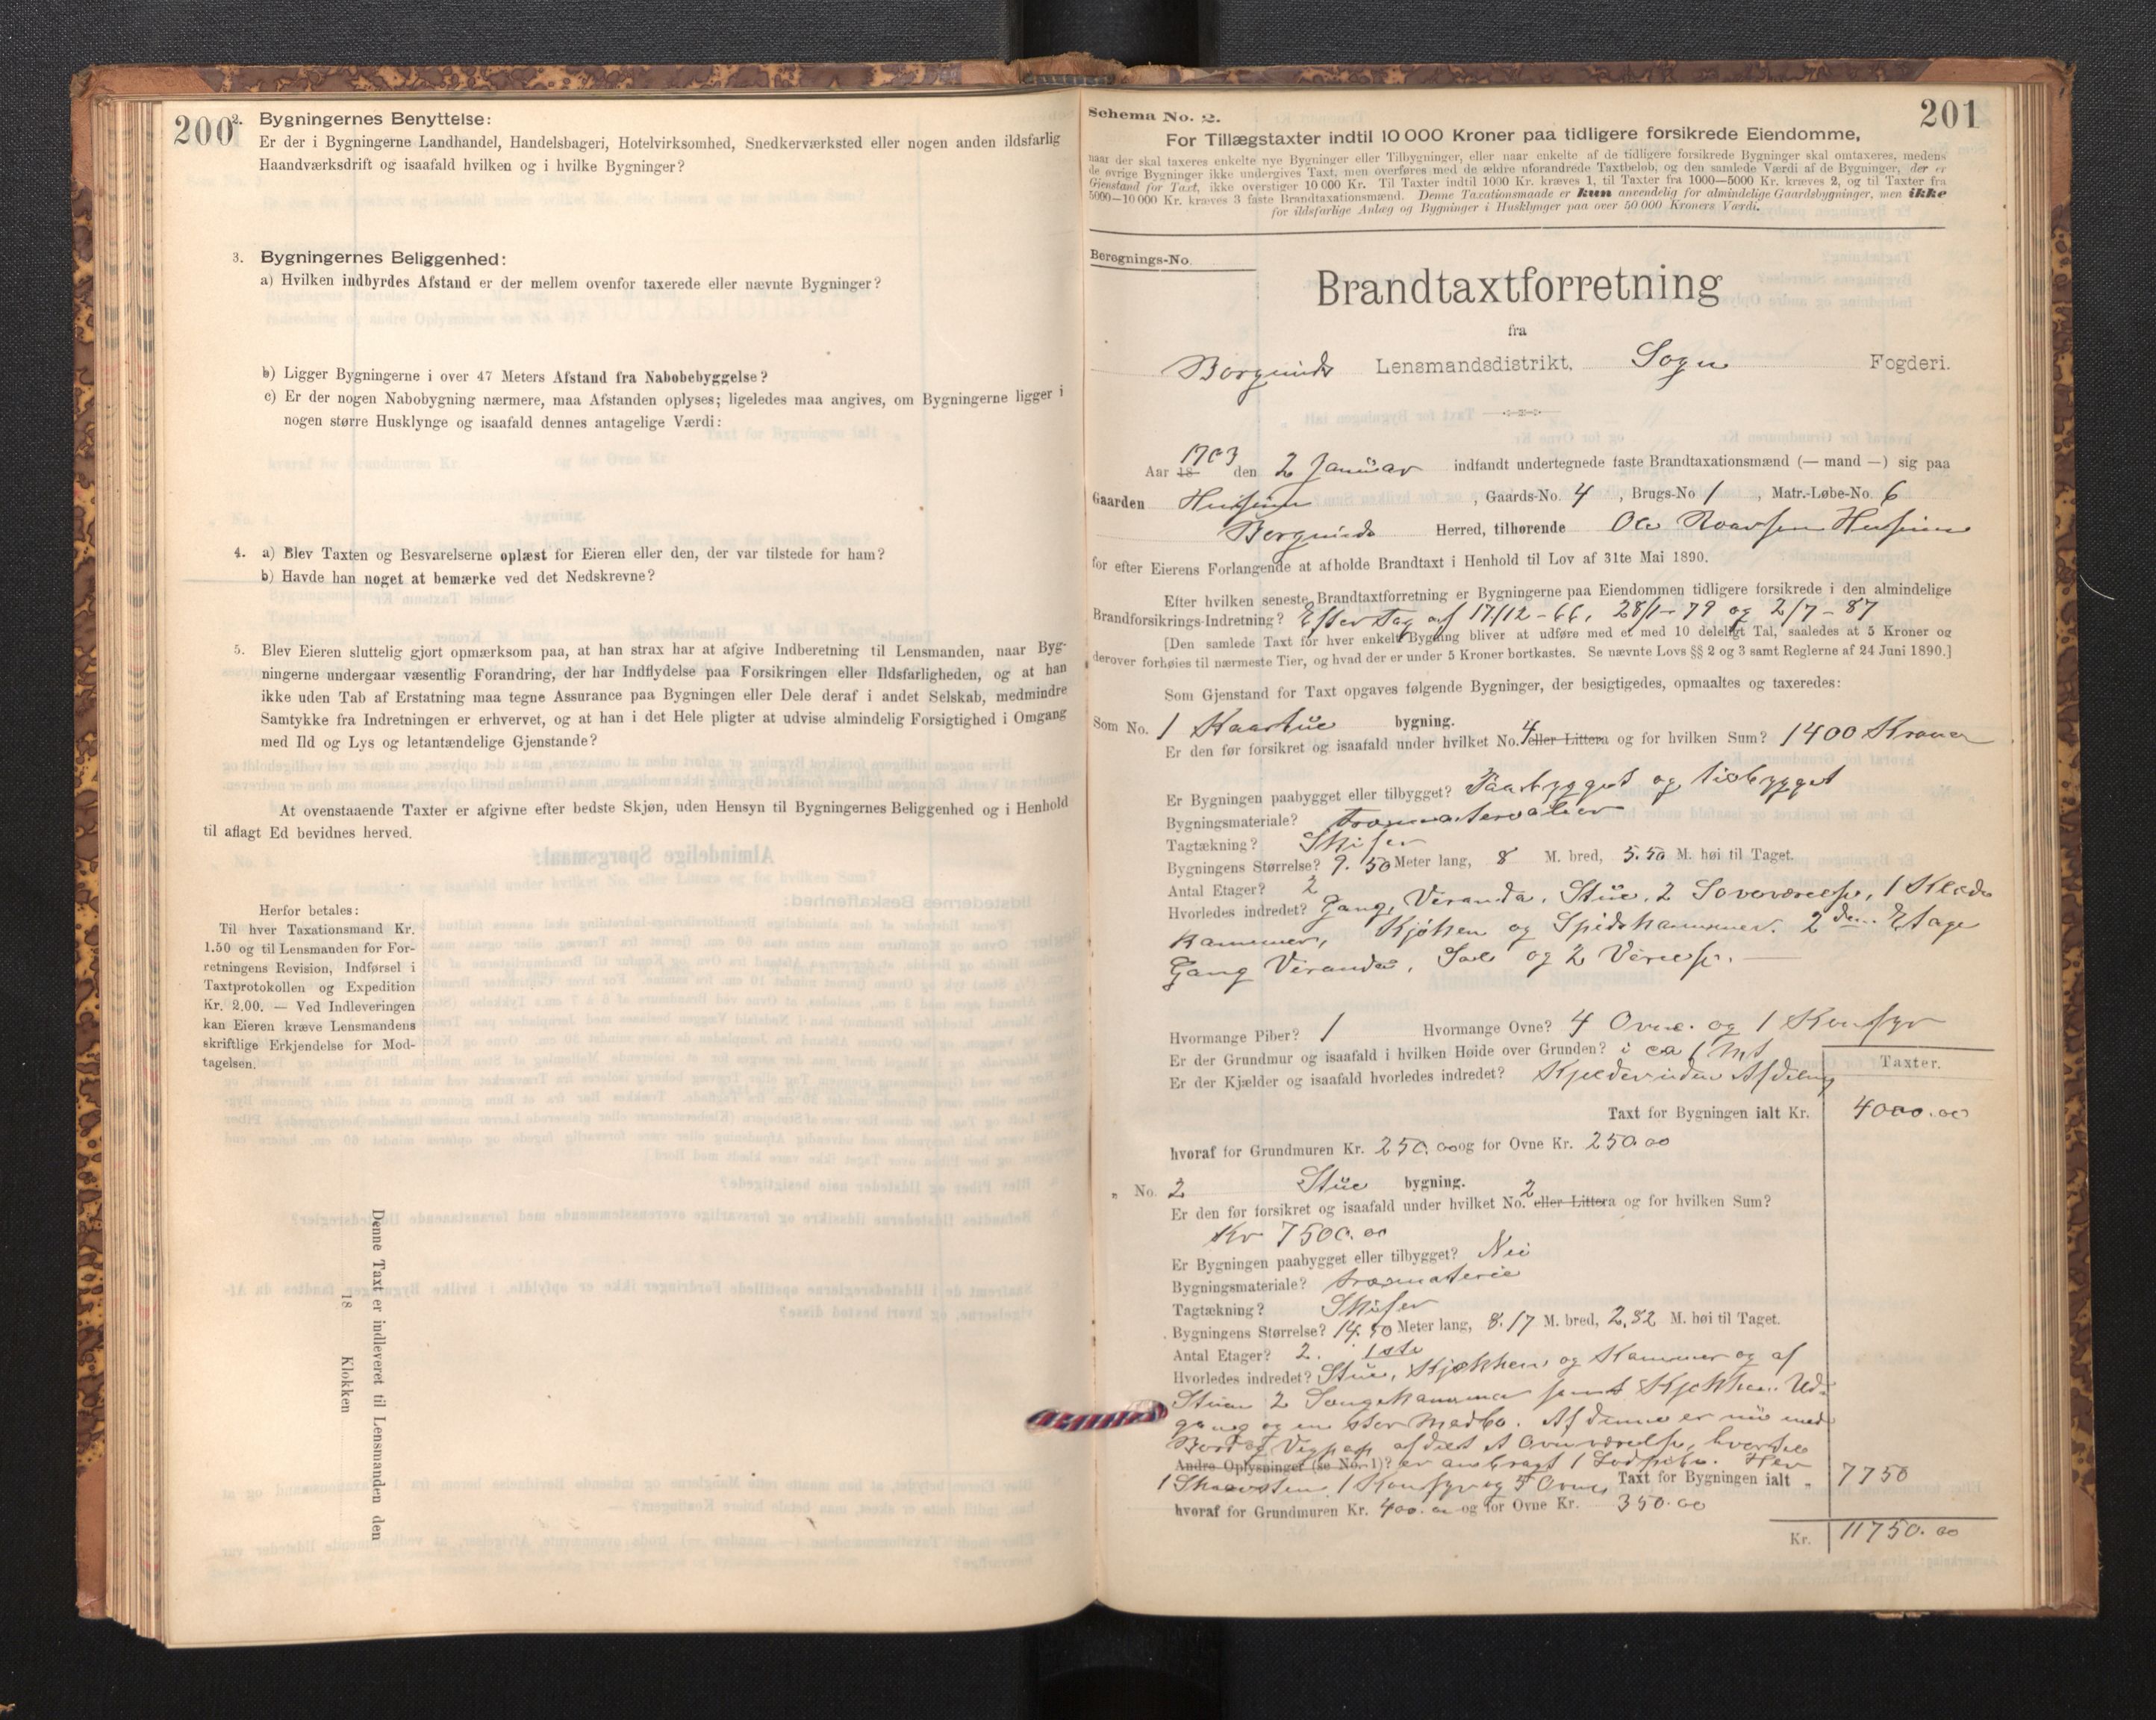 200
2. Bygningernes Benyttelse:
Er der i Bygningerne Landhandel, Handelsbageri, Hotelvirksomhed, Snedkerværksted eller nogen anden ildsfarlig
Haandværksdrift og isaafald hvilken og i hvilke Bygninger?
3. Bygningernes Beliggenhed:
a) Hvilken indbyrdes Afstand er der mellem ovenfor taxerede eller nævnte Bygninger?
b) Ligger Bygningerne i over 47 Meters Afstand fra Nabobebyggelse?
c) Er der nogen Nabobygning nærmere, maa Afstanden oplyses; ligeledes maa angives, om Bygningerne ligger i
nogen større Husklynge og isaafald dennes antagelige Værdi:
4. a) Blev Taxten og Besvarelserne oplæst for Eieren eller den, der var tilstede for ham?
b) Havde han noget at bemærke ved det Nedskrevne?
5. Blev Eieren sluttelig gjort opmærksom paa, at han strax har at afgive Indberetning til Lensmanden, naar Byg-
ningerne undergaar væsentlig Forandring, der har Indflydelse paa Forsikringen eller Ildsfarligheden, og at han
ikke uden Tab af Erstatning maa tegne Assurance paa Bygningen eller Dele deraf i andet Selskab, medmindre
Samtykke fra Indretningen er erhvervet, og at han i det Hele pligter at udvise almindelig Forsigtighed i Omgang
med Ild og Lys og letantændelige Gjenstande?
At ovenstaaende Taxter er afgivne efter bedste Skjøn, uden Hensyn til Bygningernes Beliggenhed og i Henhold
til aflagt Ed bevidnes herved.
Herfor betales:
Til hver Taxationsmand Kr.
1.50 og til Lensmanden for For-
retningens Revision, Indførsel i
Taxtprotokollen og Expedition
Kr. 2.00. — Ved Indleveringen
kan Eieren kræve Lensmandens
skriftlige Erkjendelse for Mod-
tagelsen.
Denne Taxt er indleveret til Lensmanden den
18 Klokken
201
Schema No. 2.
For Tillægstaxter indtil 10 000 Kroner paa tidligere forsikrede Eiendomme,
naar der skal taxeres enkelte nye Bygninger eller Tilbygninger, eller naar enkelte af de tidligere forsikrede Bygninger skal omtaxeres, medens
de øvrige Bygninger ikke undergives Taxt, men overføres med de ældre uforandrede Taxtbeløb, og den samlede Værdi af de Bygninger, der er
Gjenstand for Taxt, ikke overstiger 10 000 Kr. Til Taxter indtil 1000 Kr. kræves 1, til Taxter fra 1000—5000 Kr. kræves 2, og til Taxter fra
5000—10 000 Kr. kræves 3 faste Brandtaxationsmænd. Denne Taxationsmaade er kun anvendelig for almindelige Gaardsbygninger, men ikke
for ildsfarlige Anlæg og Bygninger i Husklynger paa over 50 000 Kroners Værdi.
Beregnings-No.
Brandtaxtforretning
fra
Borgunds Lensmandsdistrikt, Sogn Fogderi.
Aar 18 1703 den 2 Januar indfandt undertegnede faste Brandtaxationsmænd (— mand —) sig paa
Gaarden Husum, Gaards-No. 4, Brugs-No 1, Matr.-Løbe-No. 6
Borgunds Herred, tilhørende Ole Husum
for efter Eierens Forlangende at afholde Brandtaxt i Henhold til Lov af 31te Mai 1890.
Efter hvilken seneste Brandtaxtforretning er Bygningerne paa Eiendommen tidligere forsikrede i den almindelige
Brandforsikrings-Indretning? Efter Tag af 17/12-66, 28/1-79 og 2/7-87
[Den samlede Taxt for hver enkelt Bygning bliver at udføre med et med 10 deleligt Tal, saaledes at 5 Kroner og
derover forhøies til nærmeste Tier, og hvad der er under 5 Kroner bortkastes. Se nævnte Lovs §§ 2 og 3 samt Reglerne af 24 Juni 1890.]
Som Gjenstand for Taxt opgaves følgende Bygninger, der besigtigedes, opmaaltes og taxeredes:
Som No. 1 Kaarstue bygning.
Er den før forsikret og isaafald under hvilket No. 4 eller Littera og for hvilken Sum? 1400 Kroner
Er Bygningen paabygget eller tilbygget? Paabygget og tilbygget
Bygningsmateriale? træmaterialier
Tagtækning? Skifer
Bygningens Størrelse? 9.50 Meter lang, 8 M. bred, 5.50 M. høi til Taget.
Antal Etager? 2
Hvorledes indredet? Gang, Veranda, Stue, 2 Soveværelse, 1 Klæde
kammer, Kjøken og Spidskammer. 2den Etage
Gang Veranda, Sal og 2 Værelse.
Hvormange Piber? 1 Hvormange Ovne? 4 Ovne. og 1 Komfyr
Er der Grundmur og isaafald i hvilken Høide over Grunden? i ca 1 Mt
Er der Kjælder og isaafald hvorledes indredet? Kjelder uden Afdeling
Taxter.
Taxt for Bygningen ialt Kr. 4000.00
hvoraf for Grundmuren Kr. 250.00 og for Ovne Kr. 250.00
" No. 2 Stue bygning.
Er den før forsikret og isaafald under hvilket No. 2 eller Littera og for hvilken Sum?
Kr 7500.00
Er Bygningen paabygget eller tilbygget? Nei
Bygningsmateriale? træmaterie
Tagtækning? Skifer
Bygningens Størrelse? 14.50 Meter lang, 8.17 M. bred, 2,82 M. høi til Taget.
Antal Etager? 2. 1ste
Hvorledes indredet? Stue, Kjøkken, og Kammer og af
Stuen 2 Sengekammer samt Kjøkken. Ud-
gang og en stor Madbo. Af denne er nu med
Bord og afdelt et værelse, hvortil
Andre Oplysninger (se No. 1)? er anbragt 1 Hver
1 Skorsten, 1 Komfyr og 5 Ovne, Taxt for Bygningen ialt " 7750
hvoraf for Grundmuren Kr. 400.00 og for Ovne Kr. 350.00
Kr. 11750.00